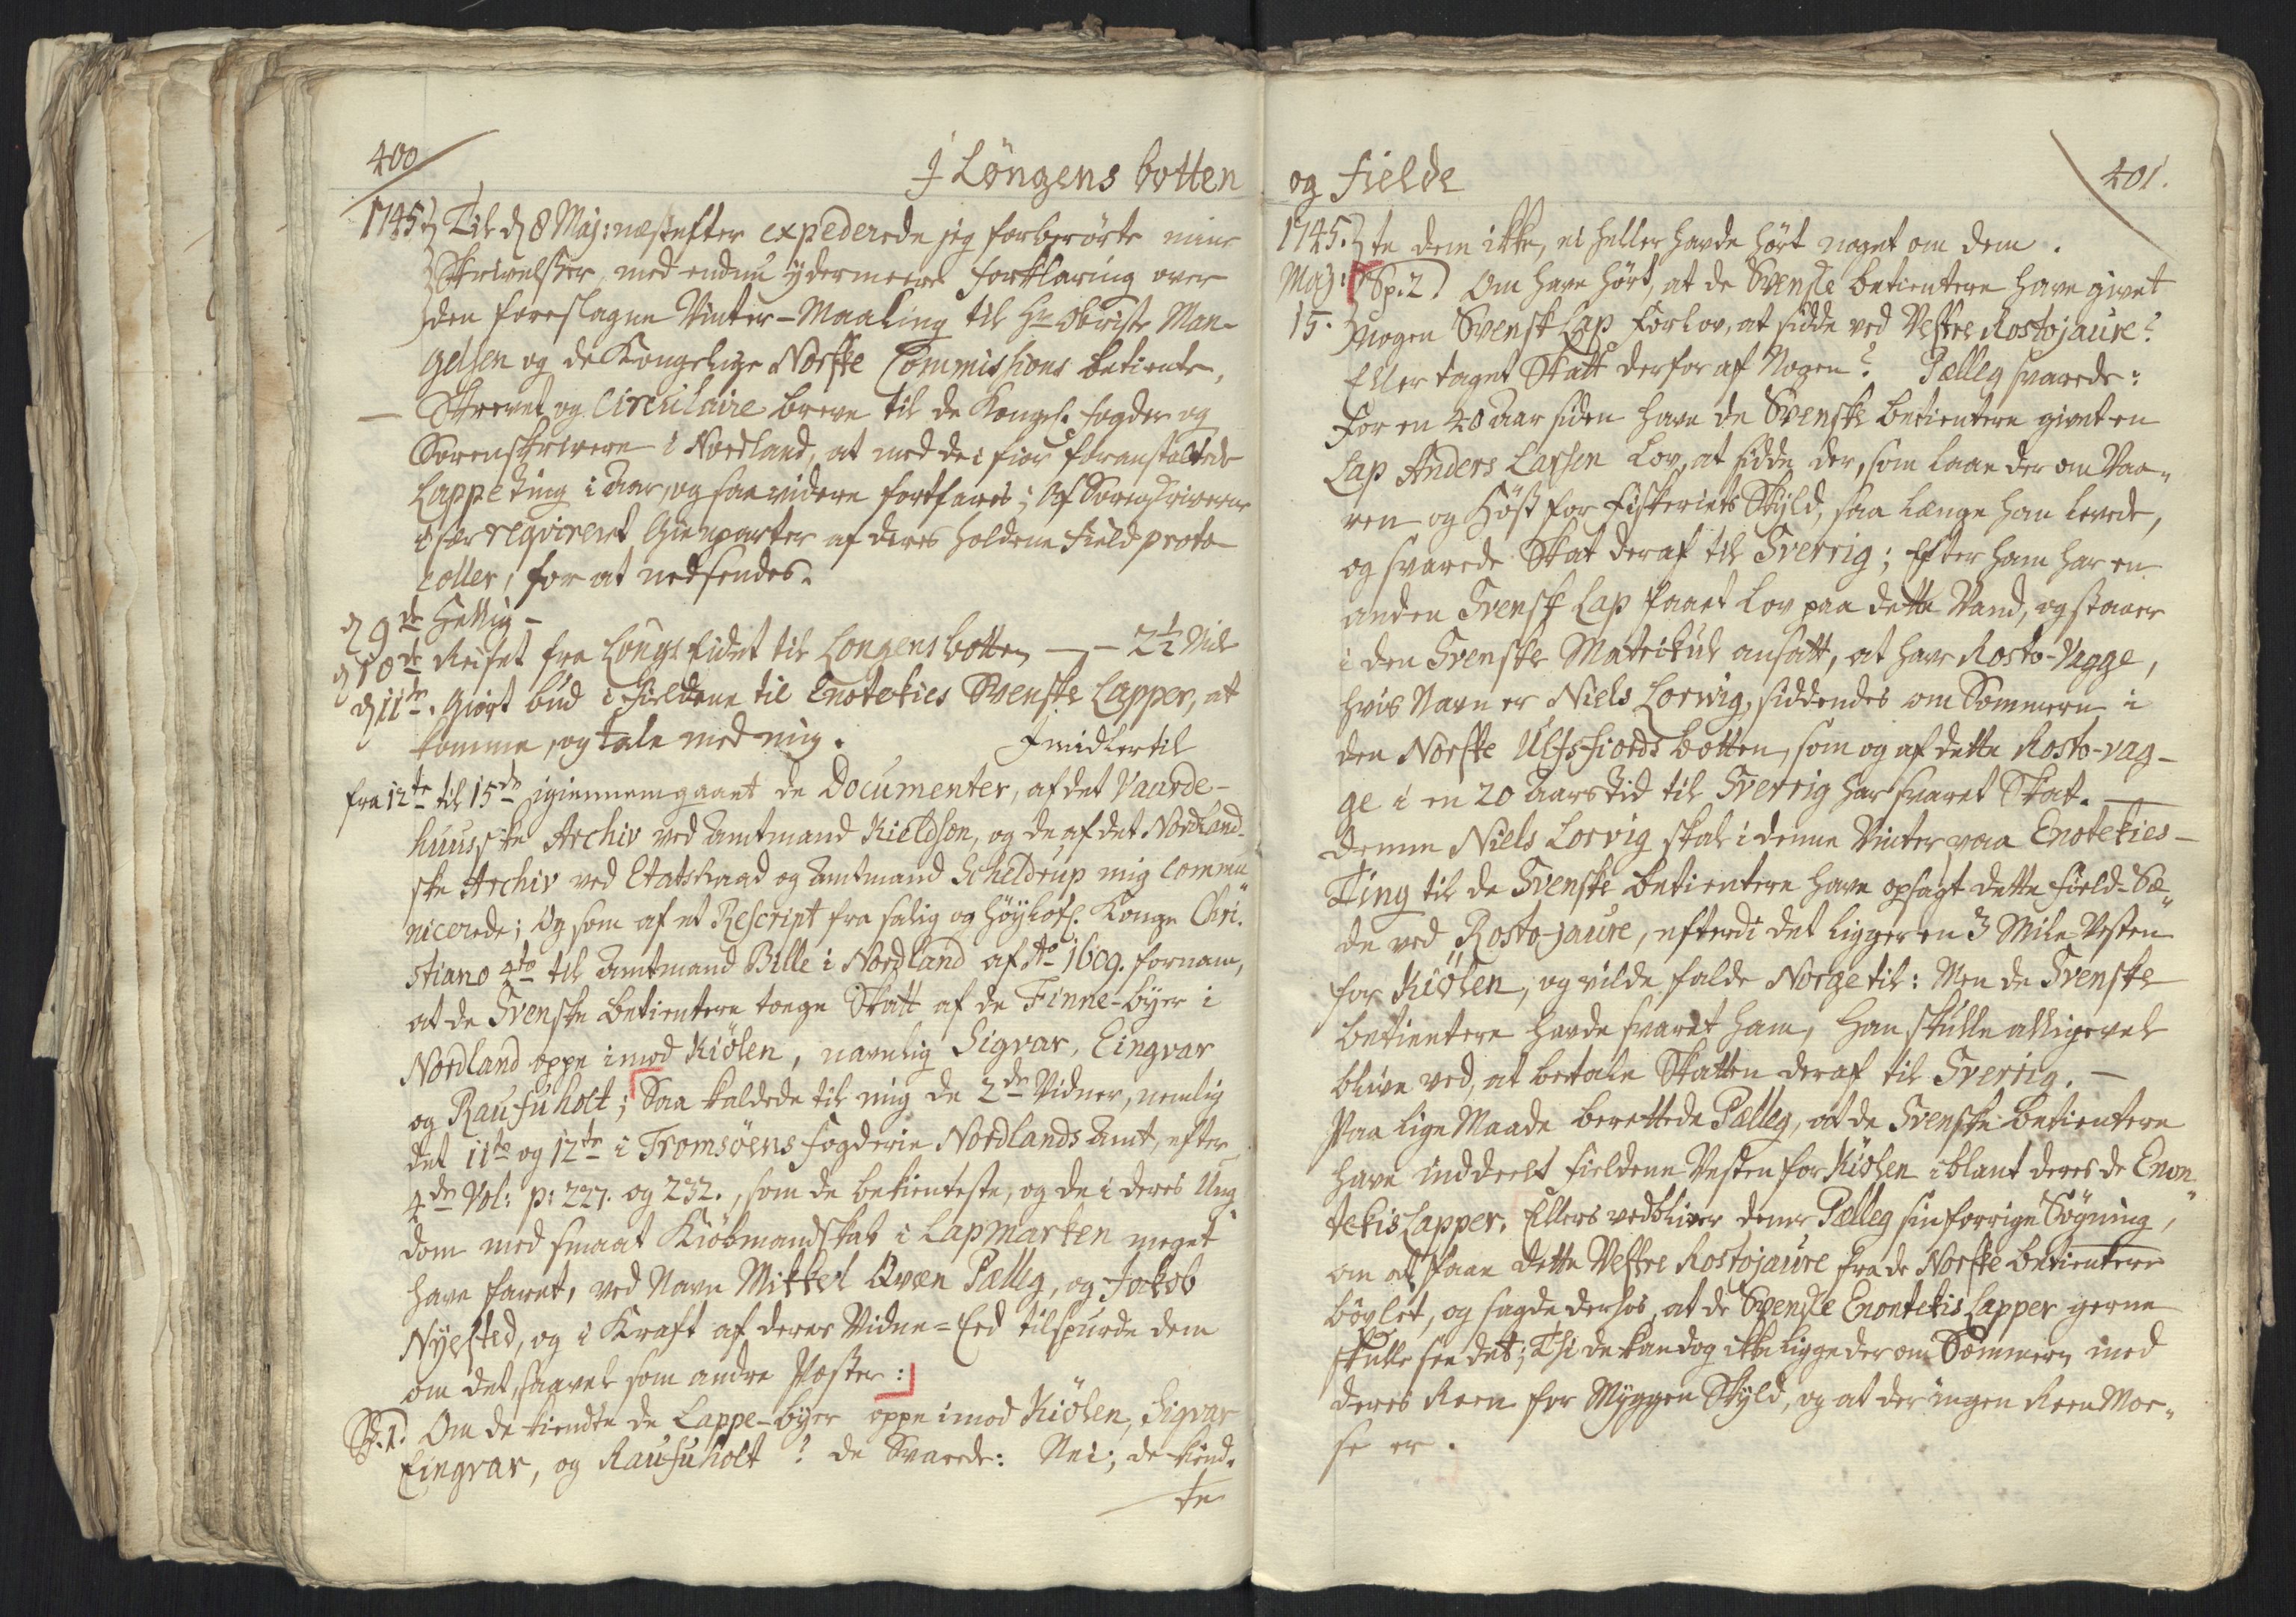 400
I Löngens botten
1745. Til d 8 Maj: næstefter expederede jeg forberörte mine
Skrivelser, med endnu ÿdermeere forklaring over
den foreslagne Vinter-Maaling til Hr Obriste Man-
gelsen og de Kongelige Norske Commissions betiente,
— Skrevet og Circulaire breve til de Kongel. fogder og
Sorenskrivere i Nordland, at med de i fior foranstaltede
Lappe ting i Aar, og saa videre fortfares; Af Sorenskriverne
især reqvireret Gienparter af deres holdene Field proto-
coller, for at nedsendes.
d 9de Hellig-
d 10de Reiset fra Longs Eidet til Longens botten — — 2½ Miil
d 11te. Giort bud i fieldene til Enotekies Svenske Lapper, at
komme, og tale med mig. Imidlertil
fra 12te til 15de igiennemgaaet de Documenter, af det Vaarde-
huusske Archiv ved Amtmand Kieldson, og de af det Nordland-
ske Archiv ved Etatsraad og Amtmand Scheldrup mig commu-
nicerede; Og som af et Rescript fra salig og höÿlofl. Konge Chri-
stiano 4to til Amtmand Bille i Nordland af Ao 1609. fornam,
at de Svenske betientere toege Skatt af de Finne-bÿer i
Nordland oppe imod Kiölen, navnlig Sigvar, Eingvar
og Raufuholt; Saa kaldede til mig de 2de Vidner, nemlig
det 11te og 12te i Tromsöens fogderie Nordlands Amt, efter
4de Vol: p: 227. og 232., som de bekienteste, og de i deres Ung-
dom med smaat Kiöbmandskab i Lapmarken meget
have faret, ved Navn Mikkel Qvæn Pælleg, og Jokob
Nÿested, og i Kraft af deres Vidne-Eed tilspurde dem
om det, saavel som andre Poster:
Sp. 1. Om de kiendte de Lappe-bÿer oppe imod Kiölen, Sigvar
Eingvar, og Raufuholt? de Svarede: Nei; de kiend-
te
og Fielde
401.
1745. te dem ikke, ei heller havde hört noget om dem.
Maj: Sp: 2. Om have hört, at de Svenske betientere have givet
15. nogen Svensk Lap forlov, at sidde ved Vestre Rostojaure?
Eller taget Skatt derfor af Nogen? Pælleg svarede:
For en 40 Aar siden have de Svenske betientere givet en
Lap Anders Larsen Lov, at sidde der, som laae der om Vaa-
ren og Höst for Fiskeriets Skÿld, saa længe han levede,
og svarede Skat deraf til Sverrig; Efter ham har en
anden Svensk Lap faaet Lov paa dette Vand, og staaer
i den Svenske Matrikul ansatt, at have Rosto-Vagge,
hvis Navn er Niels Lorvig, siddendes om Sommeren i
den Norske Ulfsfiords botten, som og af dette Rosto-vag-
ge i en 20 Aars Tid til Sverrig har svaret Skat. —
Denne Niels Lorvig skal i denne Vinter paa Enotekies-
Ting til de Svenske betientere have opsagt dette Field-Sæ-
de ved Rosto-jaure, efterdi det ligger en 3 Mile Vesten
for Kiölen, og vilde falde Norge til: Men de Svenske
betientere havde svaret ham, Han skulle alligevel
blive ved, at betale Skatten deraf til Sverrig. —
Paa lige Maade berettede Pælleg, at de Svenske betientere
have inddeelt fieldene Vesten for Kiölen iblant deres de Enon-
tekis Lapper. Ellers vedbliver denne Pælleg sin forrige Sögning,
om at faae dette Vestre Rostojaure fra de Norske betientere
böxlet, og sagde derhos, at de Svenske Enontekis Lapper gerne
skulle see det; Thi de kand og ikke ligge der om Sommeren med
deres Reen for Mÿggens Skÿld, og at der ingen Reen Mos-
se er.